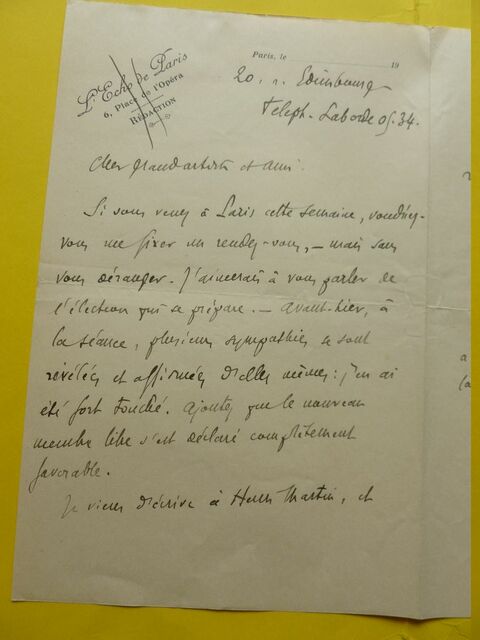 L'Echo de Paris
6, Place de l'Opéra
RÉDACTION
Paris, le 19
20. r. Edimbourg
Teleph. Laborde 05.34.
Cher grand artiste et ami
Si vous venez à Paris cette semaine, voudriez-
vous me fixer un rendez-vous, – mais sans
vous déranger. J'aimerais à vous parler de
l'élection qui se prépare. – Avant-hier, à
la séance, plusieurs sympathies se sont
révélées et affirmées d'elles mêmes : j'en ai
été fort touché. Ajoutez que le nouveau
membre libre s'est déclaré complètement
favorable.
Je viens d'écrire à Henri Martin, et